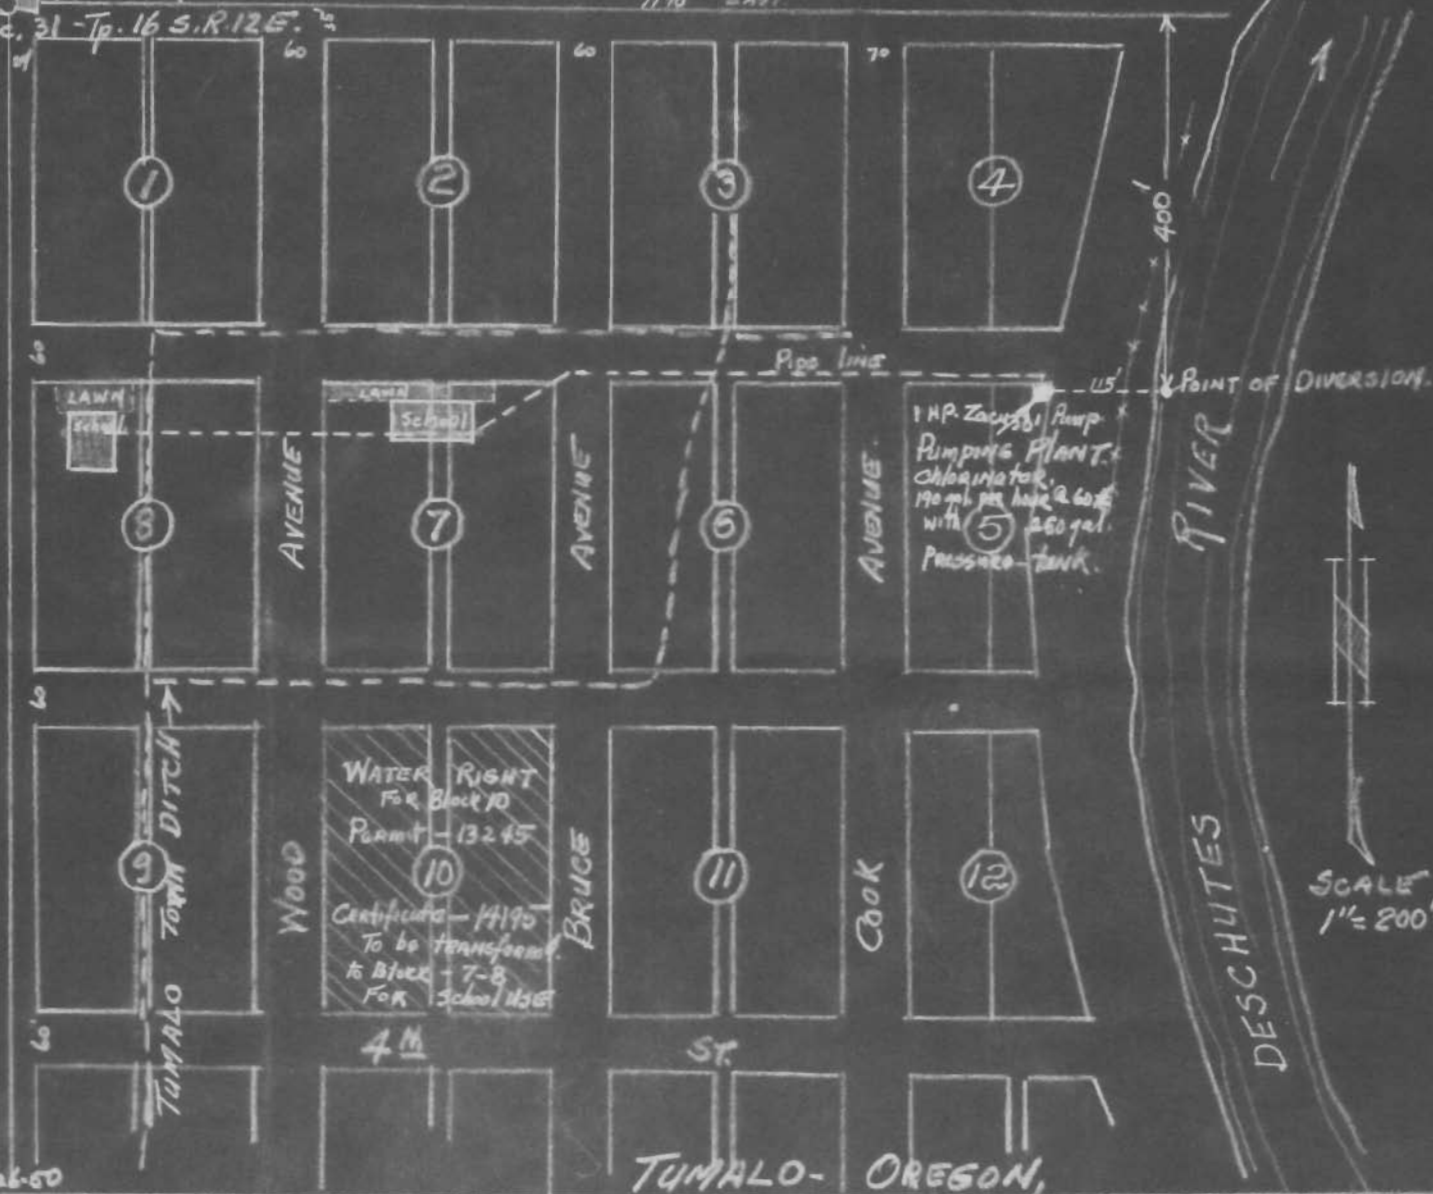 31 - Tp. 16 S. R. 12 E.
60
60
70
1
2
3
4
400'
60
Pipe Line
115'
POINT OF DIVERSION.
LAWN
School
LAWN
School
1 HP. Pump
PUMPING PLANT.
Chlorinator.
190 gal. per hour @ 60
with 250 gal.
Pressure-tank.
8
7
6
5
AVENUE
AVENUE
AVENUE
RIVER
60
WATER RIGHT
FOR Block 10
Permit - 13245
9
10
11
12
Certificate - 14195
To be transferred
to Block - 7-8
FOR School USE
TUMALO TOWN DITCH
WOOD
BRUCE
COOK
DESCHUTES
SCALE
1" = 200'
60
4th ST.
26-50
TUMALO - OREGON.